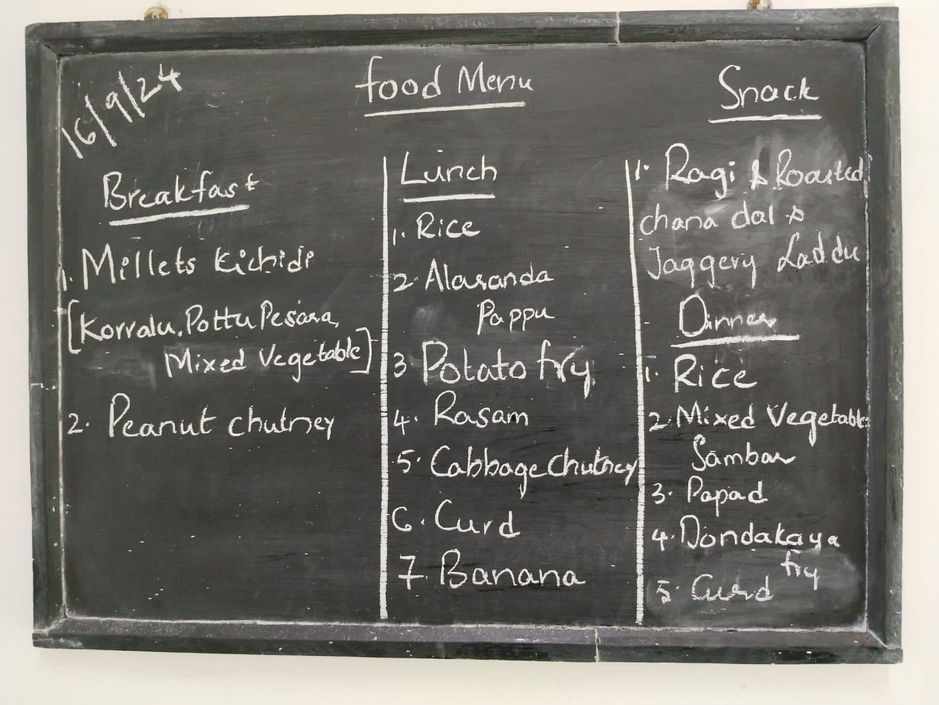 16/9/24
Food Menu
Breakfast
1. Millets Kichidi
[Korralu, Pottu Pesara,
Mixed Vegetable]
2. Peanut chutney
Lunch
1. Rice
2 Alasanda
Pappu
3 Potato fry
4. Rasam
5. Cabbage Chutney
6. Curd
7. Banana
Snack
1. Ragi & Roasted
chana dal &
Jaggery Laddu
Dinner
1. Rice
2 Mixed Vegetable
Sambar
3. Papad
4. Dondakaya
fry
5 Curd